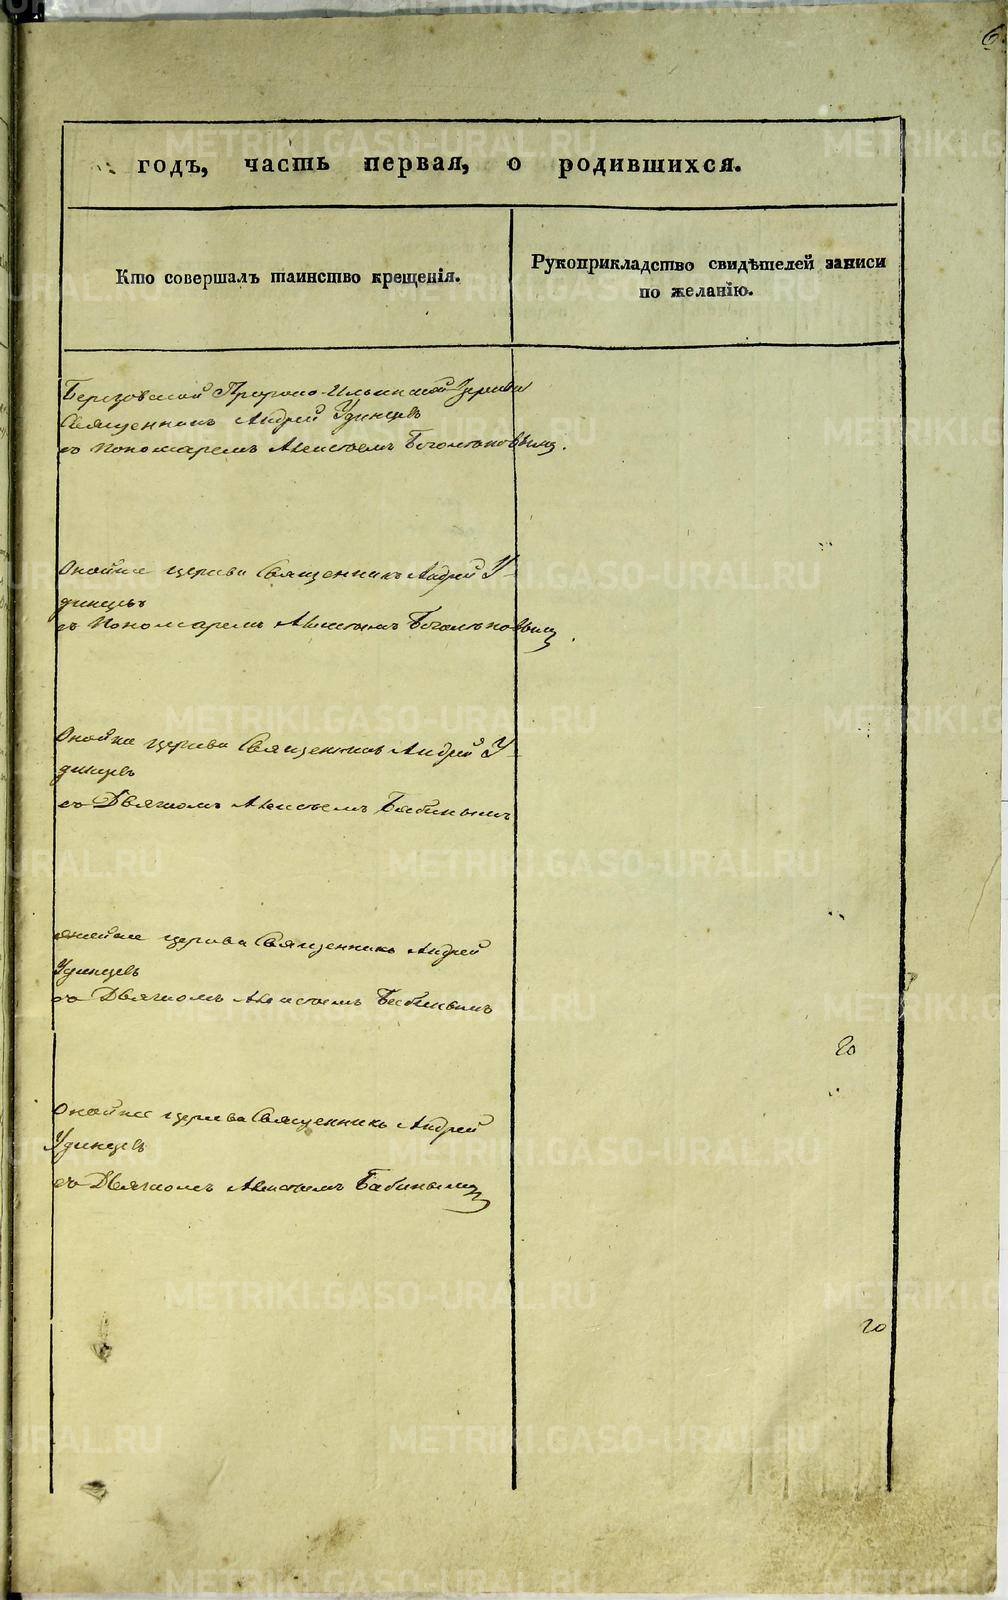 6
годъ, часть первая, о родившихся.
Кто совершалъ таинство крещенія.
Рукоприкладство свидѣтелей записи
по желанію.
Березовской Пророко-Ильинской Церкви
Священникъ Андрей Удинцевъ
съ Пономаремъ Алексѣемъ
Онойже церкви Священникъ Андрей У-
динцевъ
съ Пономаремъ Алексѣемъ
Онойже церкви Священникъ Андрей У-
динцевъ
съ Дьячкомъ Алексѣемъ Бабинымъ
Онойже церкви Священникъ Андрей
Удинцевъ
съ Дьячкомъ Алексѣемъ Бабинымъ
Онойже церкви Священникъ Андрей
Удинцевъ
съ Дьячкомъ Алексѣемъ Бабинымъ
METRIKI.GASO-URAL.RU